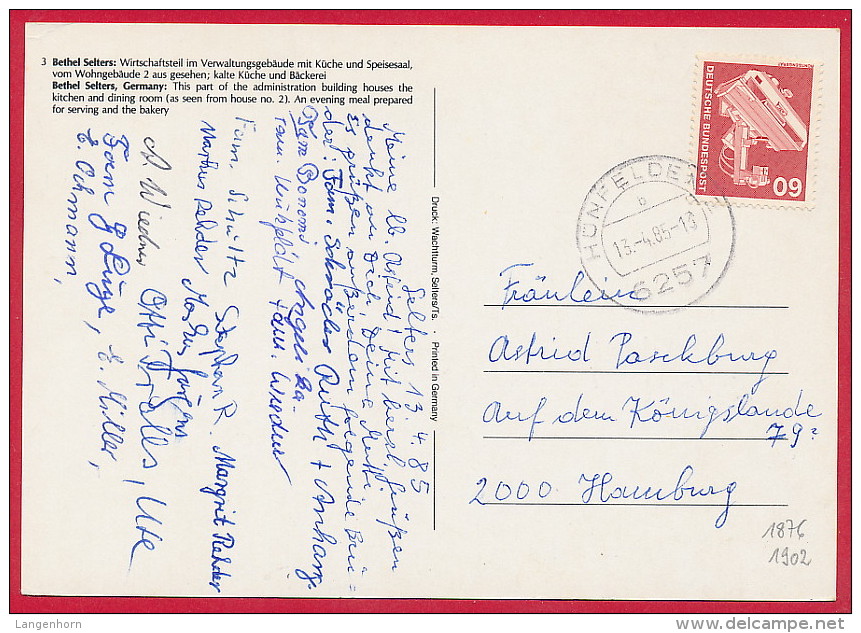 3 Bethel Selters: Wirtschaftsteil im Verwaltungsgebäude mit Küche und Speisesaal,
vom Wohngebäude 2 aus gesehen; kalte Küche und Bäckerei
Bethel Selters, Germany: This part of the administration building houses the
kitchen and dining room (as seen from house no. 2). An evening meal prepared
for serving and the bakery
Selters 13.4.85
Meine lb. Astrid! Mit herzl. Grüßen
denkt an Dich Deine Mutti.
Es grüßen außerdem folgende Brü=
der: Fam. Schröder Ruth + Anhang.
Fam Bonomi Angelika
Fam.
Fam. Schultz Stephan R. Margrit Rehder
Markus Rehder
Ute
E. Müller,
E. Ochmann,
Druck: Wachtturm, Selters/Ts. · Printed in Germany
DEUTSCHE BUNDESPOST
60
RÖNTGENGERÄT
HÜNFELDEN
b
13.-4.85-13
6257
Fräulein
Astrid Paschburg
Auf dem Königslande
79²
2000 Hamburg
1876
1902
Langenhorn
delcampe.net